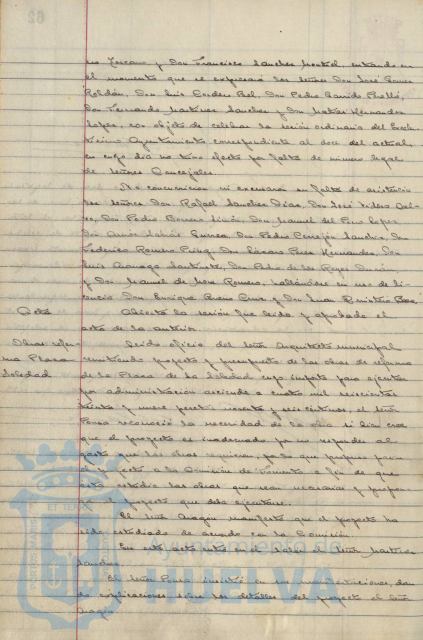 no Toscano y Don Francisco Sanchez Montiel, entrando en
el momento que se expresará los señores Don José Ponce
Roldán, Don Luis Cordero Bel, Don Pedro Garrido Perelló,
Don Fernando Martinez Sanchez y Don Matías Hernandez
Lopez, con objeto de celebrar la sesión ordinaria del Excelen-
tísimo Ayuntamiento correspondiente al doce del actual,
en cuyo dia no tuvo efecto por falta de número legal
de señores Concejales.
No concurrieron ni excusaron su falta de asistencia
los señores Don Rafael Sanchez Diaz, Don José
Don Pedro Borrero Limón, Don Manuel del Pino Lopez,
Don Pedro Cerrejón Sanchez, Don
Federico Romero Don Perez Hernandez, Don
Luis Don Pedro de los Reyes
y Don Manuel de Mora Romero, hallándose en uso de li-
cencia Don Enrique Bueno Cruz y Don Juan
Acta Abierta la sesión fue leida y aprobada el
acta de la anterior.
Obras refor- Leido oficio del señor Arquitecto municipal
ma Plaza remitiendo proyecto y presupuesto de las obras de reforma
Soledad de la Plaza de la Soledad cuyo importe para ejecutar
por administración asciende a cuatro mil seiscientas
treinta y nueve pesetas noventa y seis centimos, el señor
Ponce reconoció la necesidad de la obra si bien cree
que el proyecto es inadecuado pues no responde al
gasto que las obras requieren, por lo que propone pase
el proyecto a la Comisión de Fomento a fin de que
ésta estudie las obras que sean necesarias y propon-
ga el proyecto que deba ejecutarse.
El señor Aragón manifestó que el proyecto ha
sido estudiado de acuerdo con la Comisión.
En este acto entra en el Salón el señor Martinez
Sanchez.
El señor Ponce insistió en sus manifestaciones, dan-
do explicaciones sobre los detalles del proyecto el señor
Aragón
HUELVA